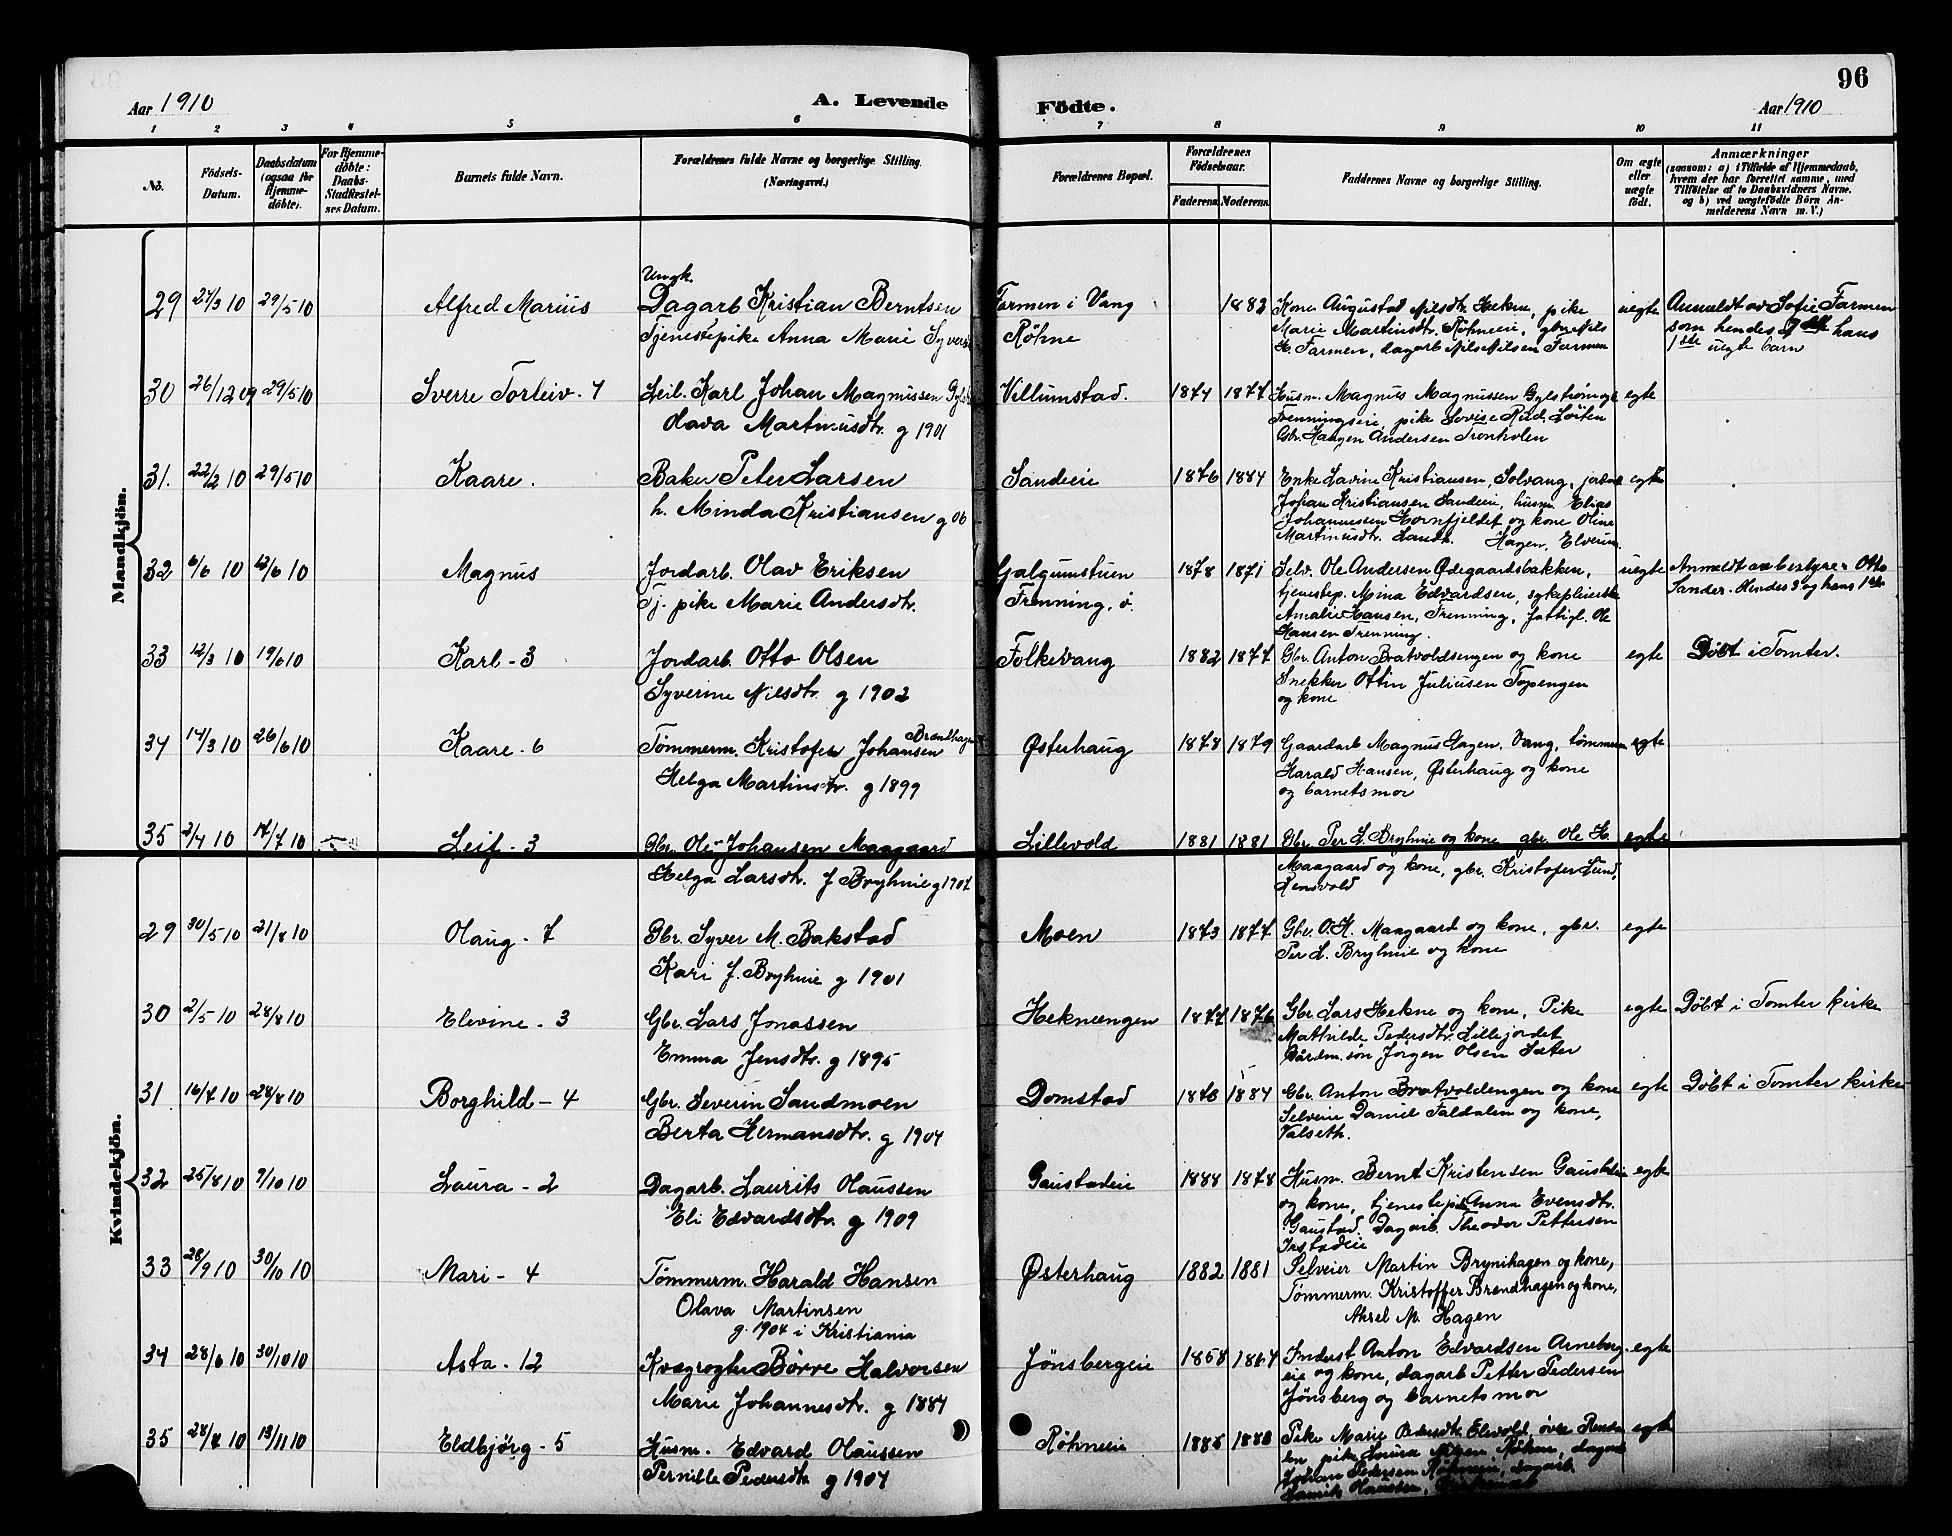 96
Aar 1910 A. Levende Födte. Aar 1910
1 2 3 4 5 6 7 8 9 10 11
No. Födsels-Datum. Daabsdatum (ogsaa for Hjemmedöbte). For Hjemmedöbte: Daabs-Stadfæstelses Datum. Barnets fulde Navn. Forældrenes fulde Navne og borgerlige Stilling. (Næringsvei.) Forældrenes Bopæl. Forældrenes Födselsaar. Faderens Moderens Faddernes Navne og borgerlige Stilling. Om ægte eller uægte födt. Anmærkninger (saasom: a) i Tilfælde af Hjemmedaab, hvem der har forrettet samme, med Tilföielse af to Daabsvidners Navne. og b) ved uægtefödte Börn Anmelderens Navn m. V.)
Mandkjön.
Ungk.
29 27/3 10 29/5 10 Alfred Marius Dagarb Kristian Berntsen Farmen i Vang 1883 Kone Augusta Nilsdtr. Hekne, pike uegte Anmeldt av Sofie Farmen
Tjenestepike Anna Marie Syvers Røhne Marie Martinsdtr. Røhneeie, gbr Nils som hendes hans
H. Farmen, dagarb Nils Nilsen Farmen 1ste uegte barn
30 26/12 09 29/5 10 Sverre Torleiv - 7 Leil. Karl Johan Magnussen Villumstad. 1874 1877 Husm. Magnus Magnussen egte
Olava Martinusdtr. g 1901 Frenningseie, pike Lovise Rud, Løiten
Gbr. Haagen Andersen Tronholen
31. 22/2 10 29/5 10 Kaare. Baker Peter Larsen Sandeeie 1876 1884 Enke Lavine Kristiansen, Solvang, egte
h. Minda Kristiansen g 06 Johan Kristiansen Sandeeie, husm. Elias
Johannessen Hornfjeldet og kone Oline
Martinusdtr. Hagen, Elverum.
32 6/6 10 12/6 10 Magnus Jordarb. Olav Eriksen Galgumstuen 1878 1871 Selv. Ole Andersen Ødegaardsbakken, uegte Anmeldt av bestyrer Otto
Tj. pike Marie Andersdtr. Frenning, ø. tjenestep. Mina Edvardsen, sykepleierske Sander. Hendes 3 og hans 1ste
Amalie Hansen, Frenning, fattigl. Ole
Hansen Frenning.
33 12/3 10 19/6 10 Karl - 3 Jordarb. Otto Olsen Folkevang 1882 1877 Gbr. Anton Bratvoldsengen og kone egte Døbt i Tomter.
Syverine Nilsdtr. g 1902 Snekker Ottin Juliusen Topengen
og kone
34 14/3 10 26/6 10 Kaare - 6 Tømmerm. Kristofer Johansen Brændhagen Østerhaug 1878 1879 Gaardarb Magnus Hagen, Vang, tømmerm egte
Helga Martinsdtr. g 1899 Harald Hansen, Østerhaug og kone
og barnets mor
35 2/4 10 17/7 10 Leif - 3 Gbr. Ole Johansen Maagaard Lillevold 1881 1881 Gbr. Per L. Bryhnie og kone gbr. Ole H. egte
Helga Larsdtr. f Bryhnie g 1907 Maagaard og kone, gbr. Kristofer Lund,
Rensvold
Kvindekjön.
29 30/5 10 21/8 10 Olaug - 7 Gbr. Syver M. Bakstad Moen 1873 1877 Gbr. O. H. Maagaard og kone, gbr. egte
Kari f. Bryhnie g 1901 Per L. Bryhnie og kone
30 2/5 10 28/8 10 Elevine - 3 Gbr. Lars Jonassen Hekneengen 1877 1876 Gbr. Lars Hekne og kone, Pike egte Døbt i Tomter kirke
Emma Jensdtr. g 1895 Mathilde Pedersdtr. Lillejordet
Gårdm. søn Jørgen Olsen Sæter
31 16/7 10 28/8 10 Borghild - 4 Gbr. Severin Sandmoen Domstad 1876 1884 Gbr. Anton Bratvoldengen og kone egte Døbt i Tomter kirke
Berta Hermansdtr. g 1904 Selveier Daniel Taldalen og kone,
Valseth.
32 25/8 10 9/10 10 Laura - 2 Dagarb. Laurits Olaussen Gaustadeie 1888 1878 Husm. Bernt Kristensen Gaustadeie egte
Eli Edvardsdtr. g 1909 og kone, tjenestepike Anna Evensdtr.
Gaustad. Dagarb. Theodor Pettersen
Irstadeie
33 28/9 10 30/10 10 Mari - 4 Tømmerm. Harald Hansen Østerhaug 1882 1881 Selveier Martin Brynihagen og kone,
Olava Martinsen Tømmerm. Kristoffer Brændhagen og kone,
g. 1904 i Kristiania Aksel M. Hagen
34 28/6 10 30/10 10 Asta - 12 Kvægrøgter Børre Halvorsen Jønsbergeie 1858 1864 Inderst Anton Edvardsen Arneberg- egte
Marie Johannesdtr. g 1884 eie og kone, dagarb Petter Pedersen
Jønsberg og barnets mor
35 28/4 10 13/11 10 Eldbjörg - 5 Husm. Edvard Olaussen Røhneeie 1885 1888 Pike Marie Pedersdtr. Elevold, øvre egte
Pernille Pedersdtr g 1907 pike Laura Røhne, dagarb
Johan Pedersen Røhneeie, dagarb.
Laurits Olaussen,